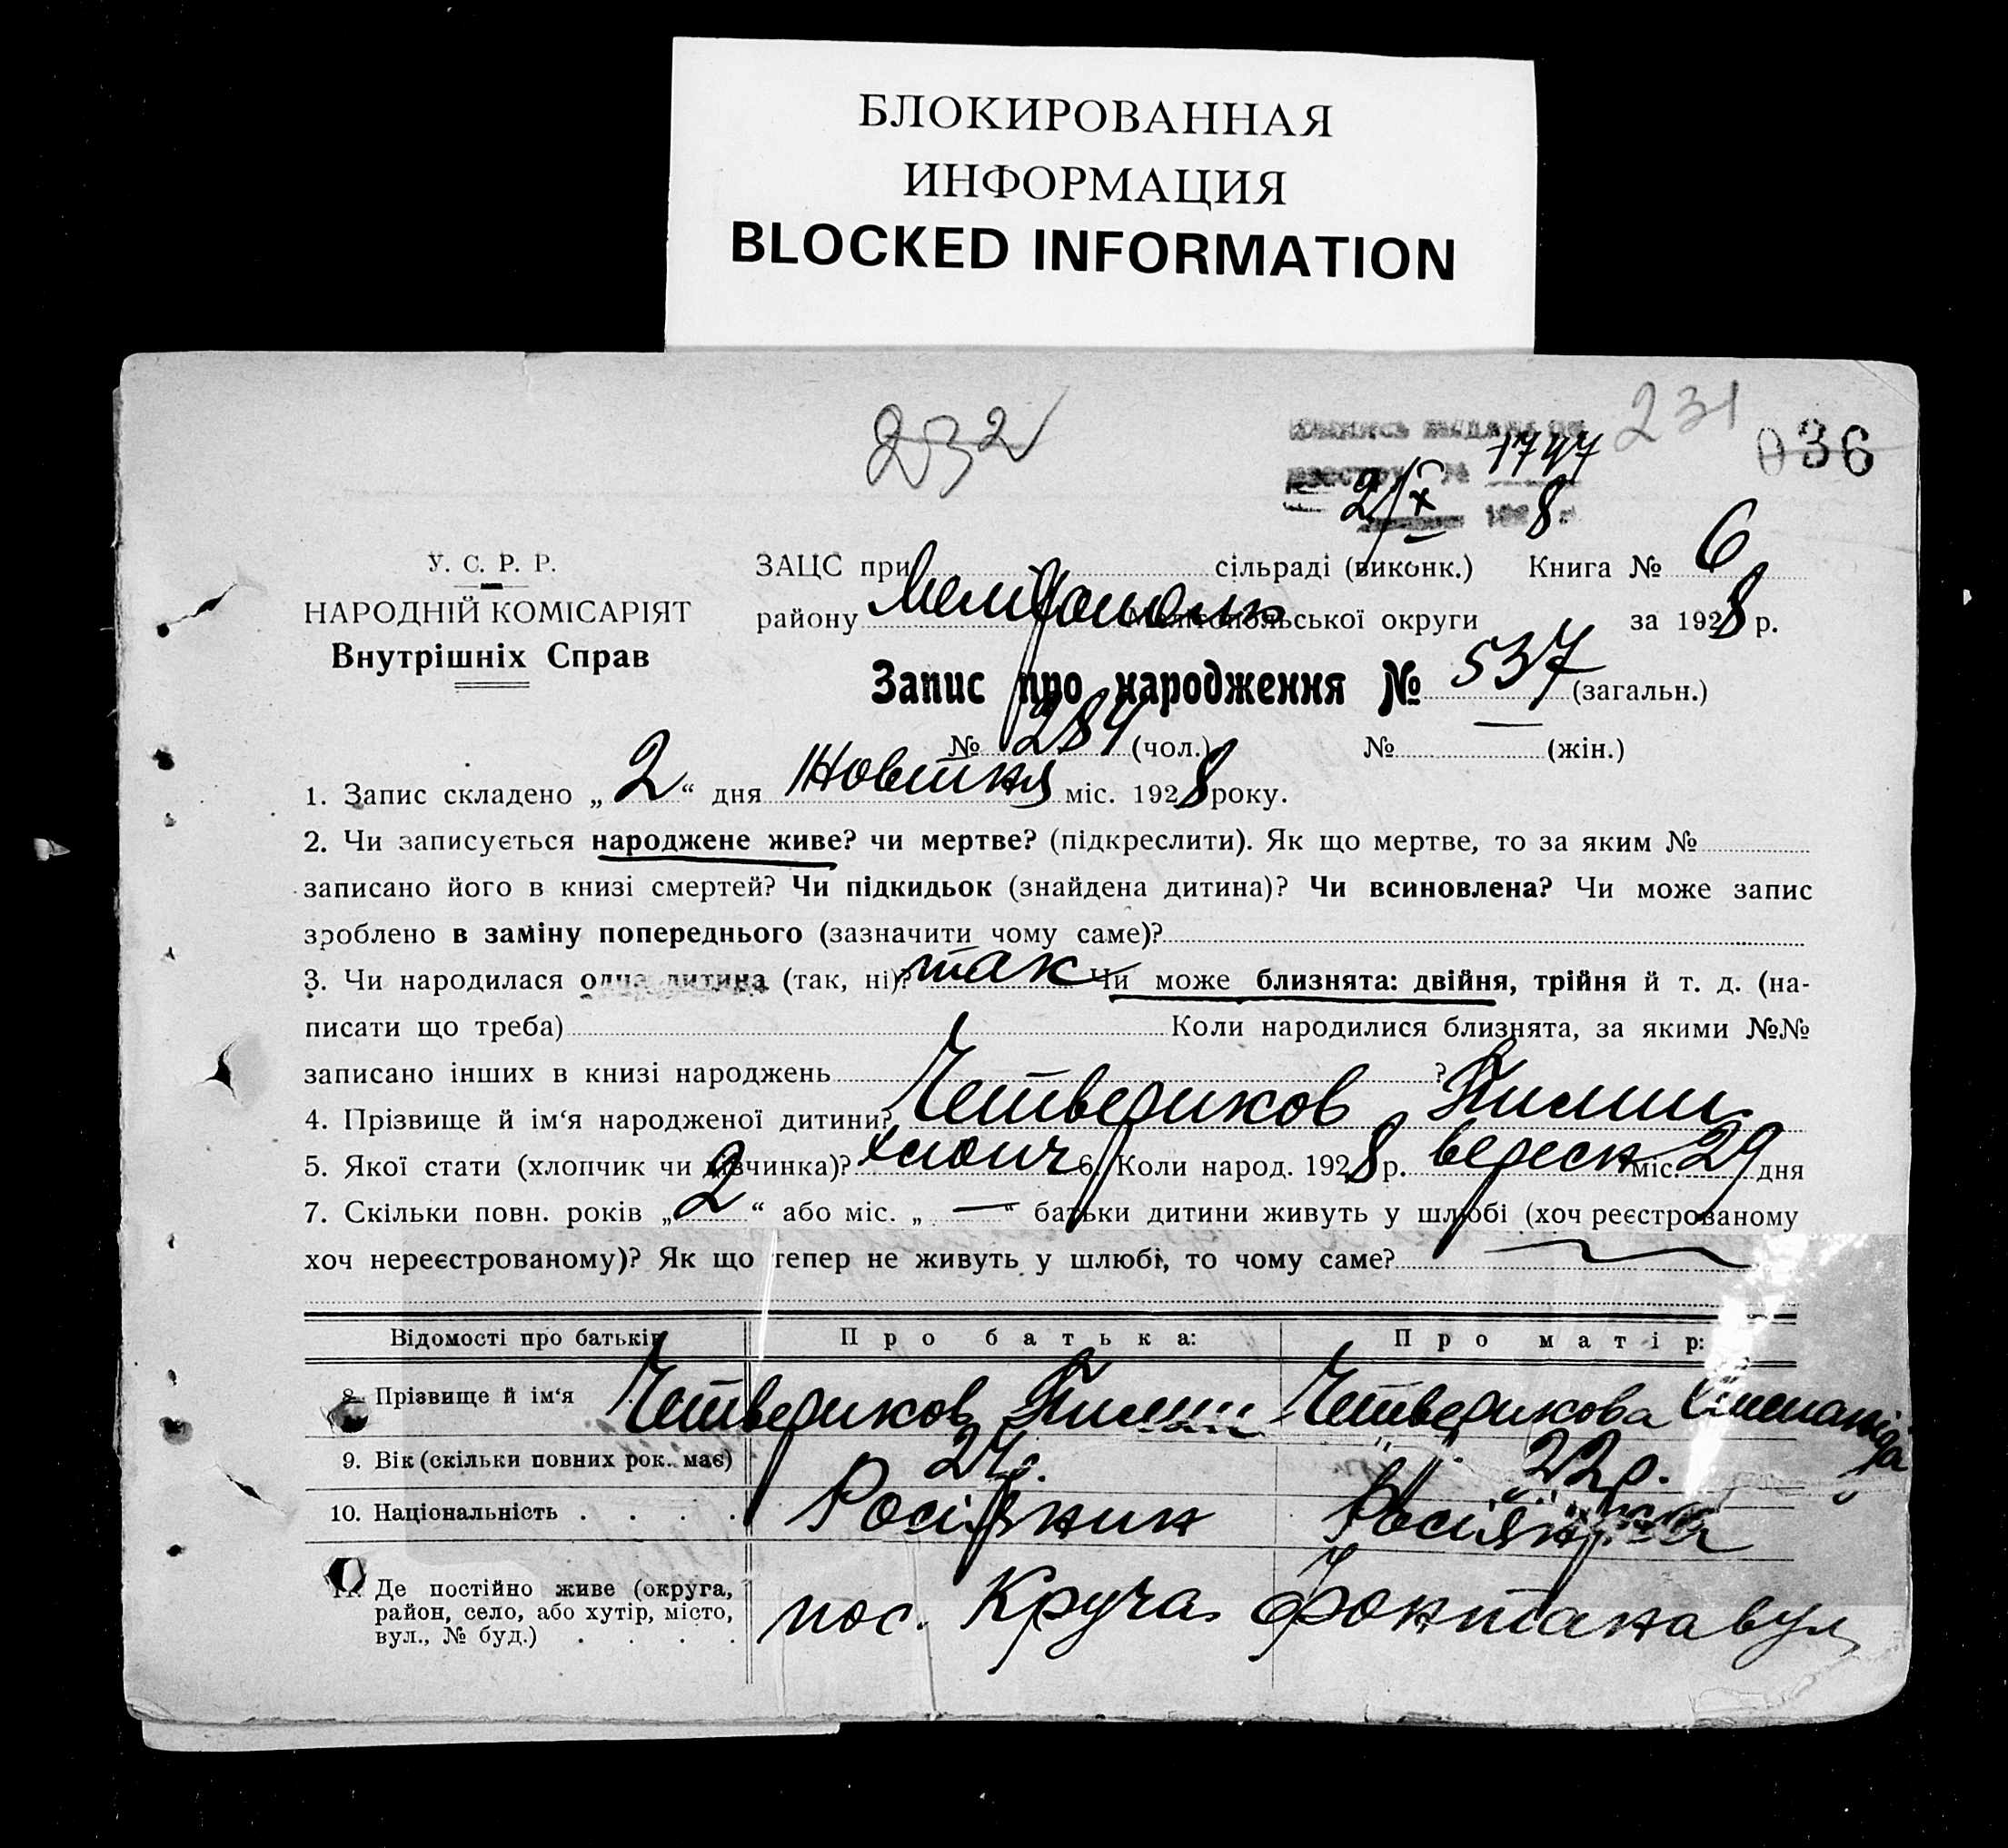 БЛОКИРОВАННАЯ
ИНФОРМАЦИЯ
BLOCKED INFORMATION
232
231
036
1747
2/X 1928
У. С. Р. Р.
НАРОДНІЙ КОМІСАРІЯТ
Внутрішніх Справ
ЗАЦС при сільраді (виконк.) Книга № 6
району Мелітопольської округи за 1928 р.
Запис про народження № 537 (загальн.)
№ 284 (чол.) № — (жін.)
1. Запис складено „2“ дня Жовтня міс. 1928 року.
2. Чи записується народжене живе? чи мертве? (підкреслити). Як що мертве, то за яким №
записано його в книзі смертей? Чи підкидьок (знайдена дитина)? Чи всиновлена? Чи може запис
зроблено в заміну попереднього (зазначити чому саме)?
3. Чи народилася одна дитина (так, ні)? так Чи може близнята: двійня, трійня й т. д. (на-
писати що треба) Коли народилися близнята, за якими №№
записано інших в книзі народжень ?
4. Прізвище й ім‘я народженої дитини? Четвериков
5. Якої стати (хлопчик чи дівчинка)? хлопч 6. Коли народ. 1928 р. вересн міс. 29 дня
7. Скільки повн. років „2“ або міс. „—“ батьки дитини живуть у шлюбі (хоч реєстрованому
хоч нереєстрованому)? Як що тепер не живуть у шлюбі, то чому саме?
Відомості про батьків Про батька: Про матір:
8. Прізвище й ім‘я Четвериков Четверикова Степанида
9. Вік (скільки повних рок. має) 22р.
10. Національність . . . . Росіянин Росіянка
11. Де постійно живе (округа,
район, село, або хутір, місто,
вул., № буд.) . . . . пос. Круча Фонтана вул